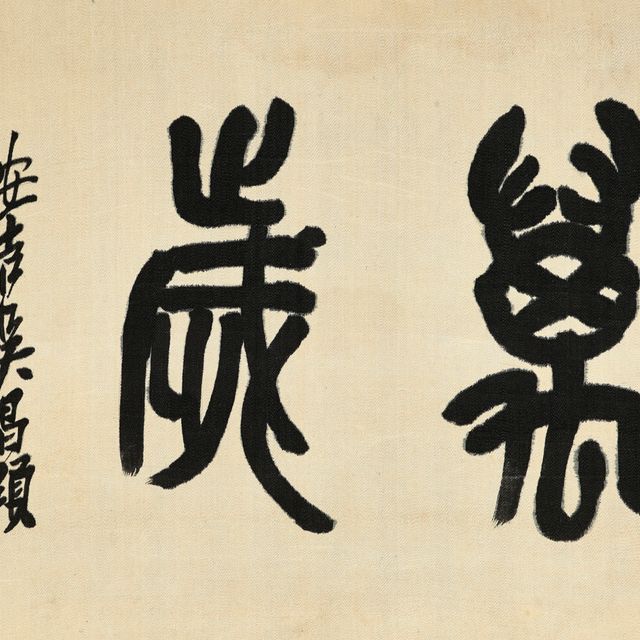 萬歲
安吉吳昌碩